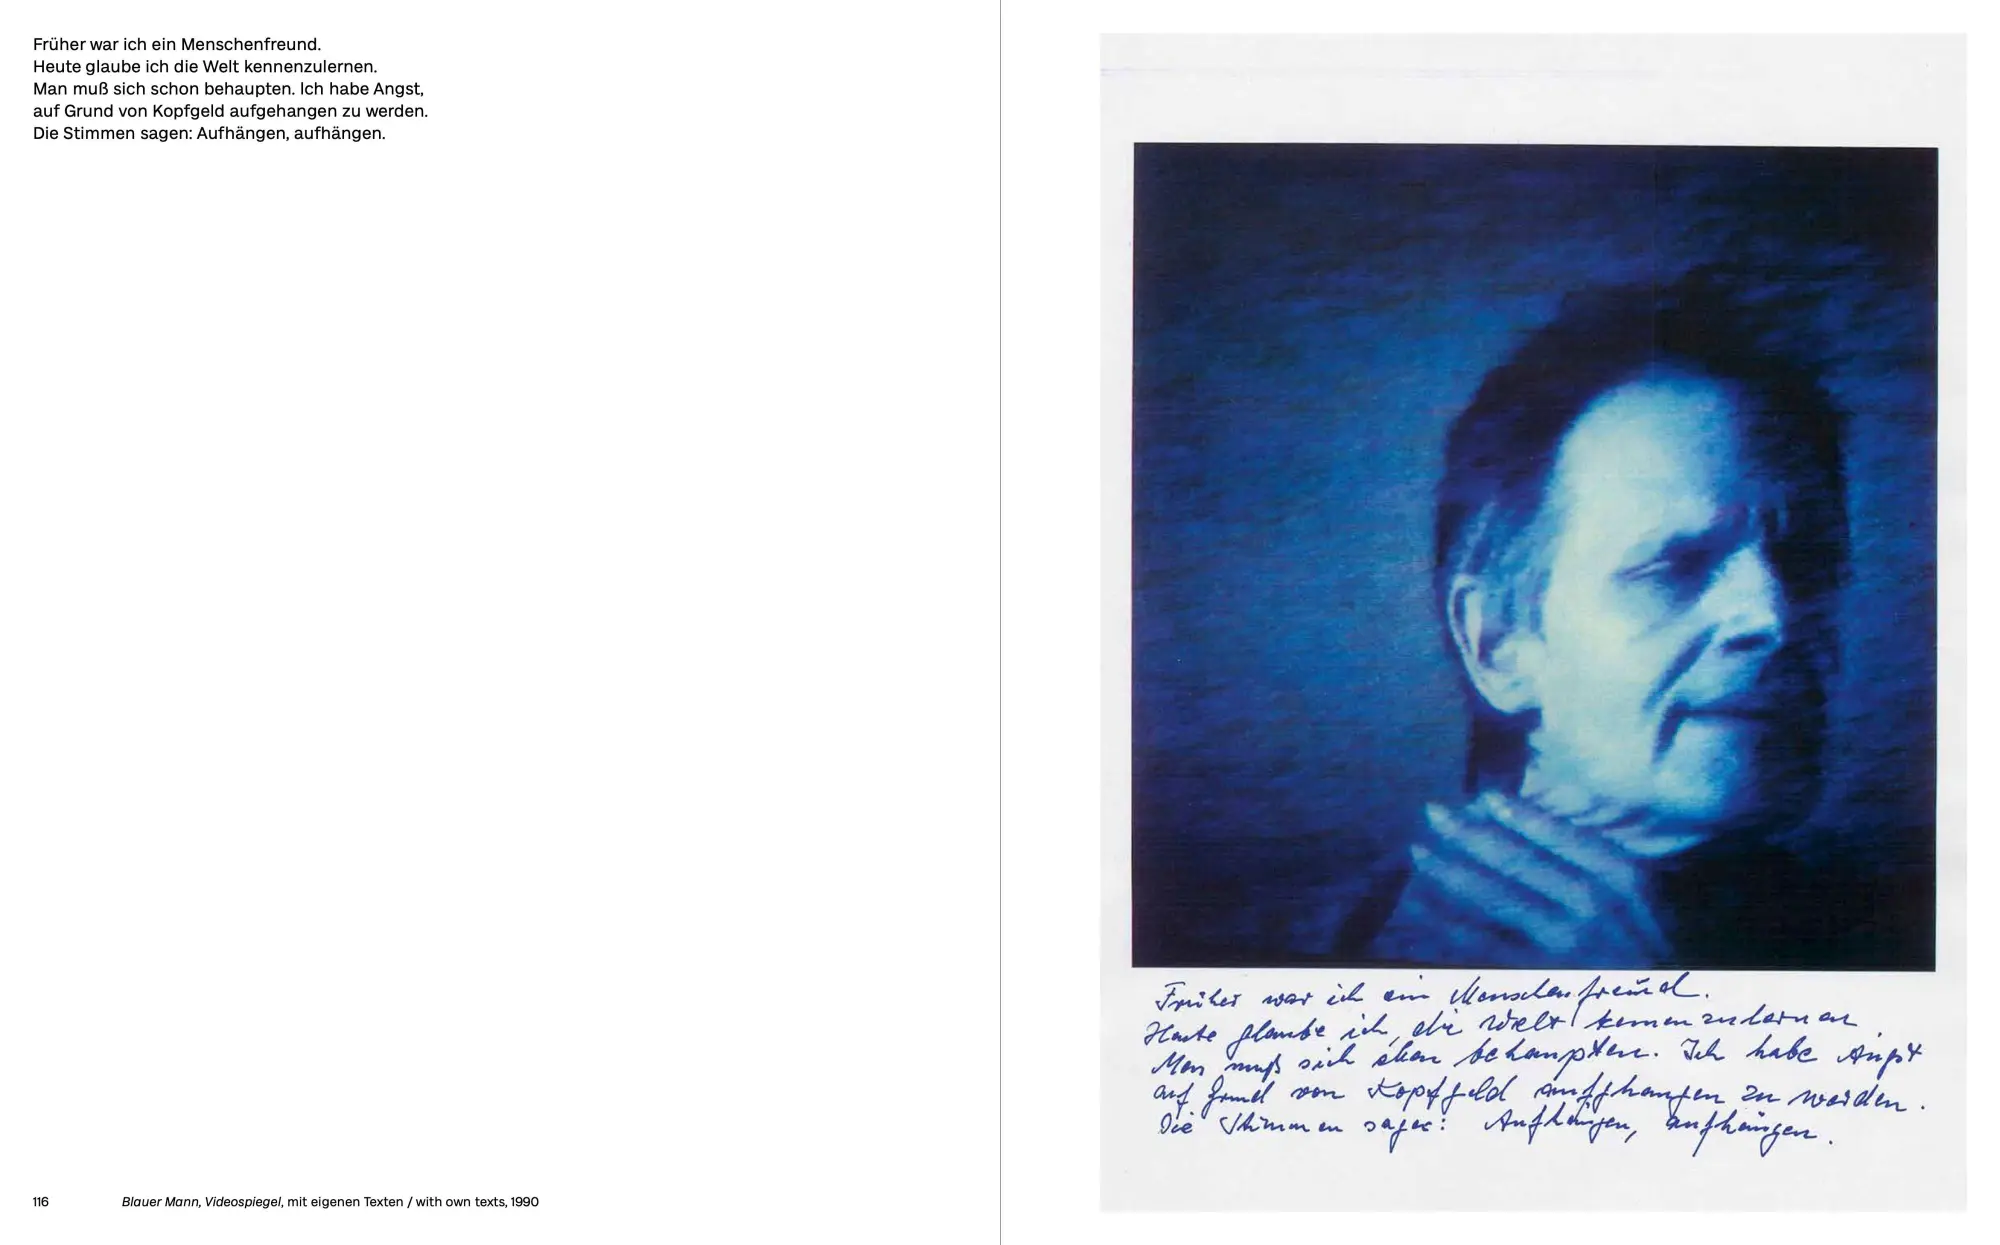 Früher war ich ein Menschenfreund.
Heute glaube ich die Welt kennenzulernen.
Man muß sich schon behaupten. Ich habe Angst,
auf Grund von Kopfgeld aufgehangen zu werden.
Die Stimmen sagen: Aufhängen, aufhängen.
116 Blauer Mann, Videospiegel, mit eigenen Texten / with own texts, 1990
Früher war ich ein Menschenfreund.
Heute glaube ich, die Welt kennenzulernen.
Man muß sich eben behaupten. Ich habe Angst
auf Grund von Kopfgeld aufgehangen zu werden.
Die Stimmen sagen: Aufhängen, aufhängen.